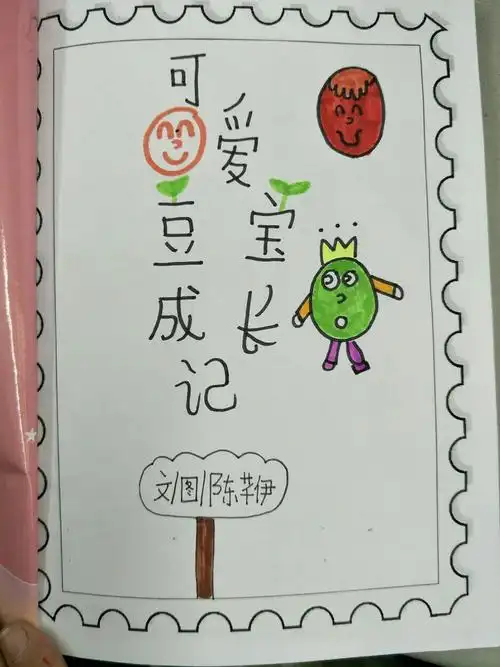 可
爱
豆宝
成长
记
文/图/陈芊伊